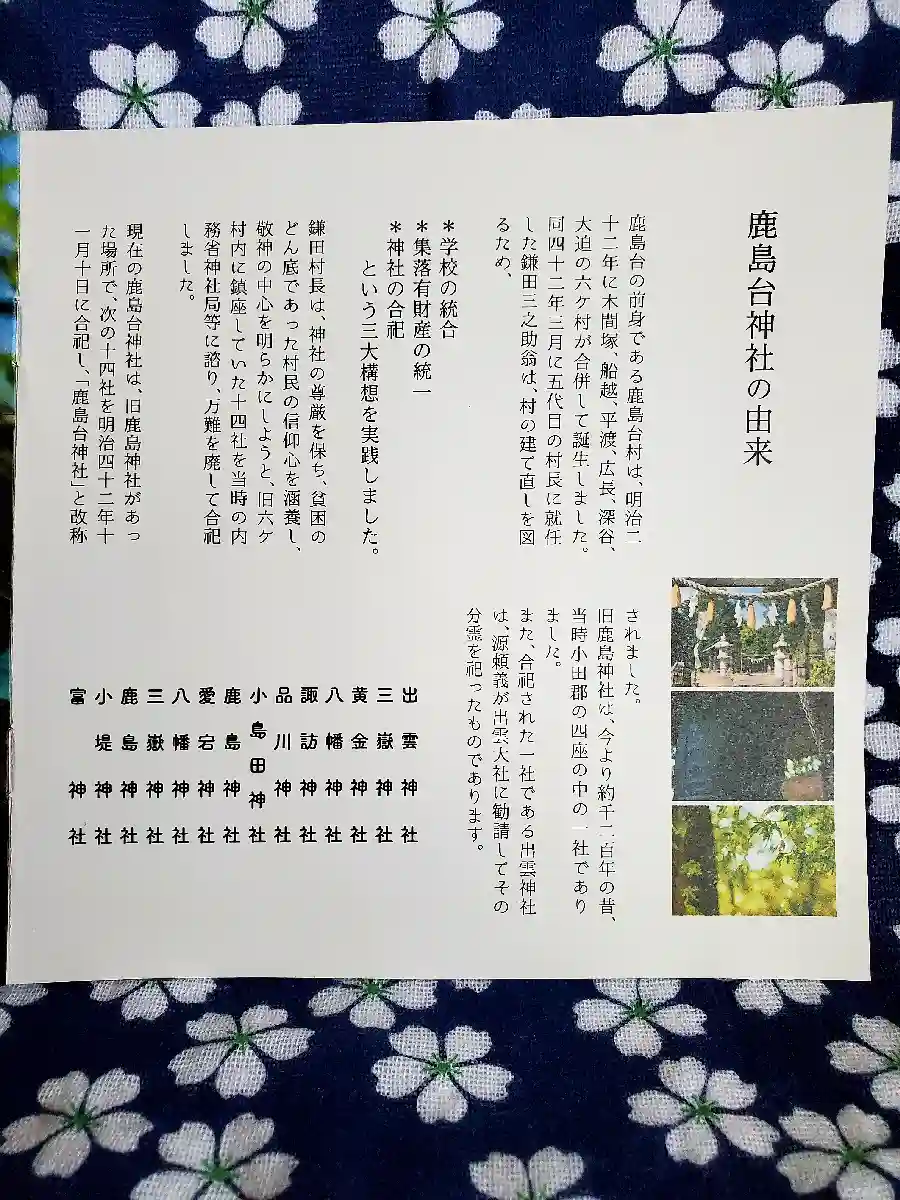 鹿島台神社の由来
鹿島台の前身である鹿島台村は、明治二
十二年に木間塚、船越、平渡、広長、深谷、
大迫の六ケ村が合併して誕生しました。
同四十二年三月に五代目の村長に就任
した鎌田三之助翁は、村の建て直しを図
るため、
*学校の統合
*集落有財産の統一
*神社の合祀
という三大構想を実践しました。
鎌田村長は、神社の尊厳を保ち、貧困の
どん底であった村民の信仰心を涵養し、
敬神の中心を明らかにしようと、旧六ケ
村内に鎮座していた十四社を当時の内
務省神社局等に諮り、万難を廃して合祀
しました。
現在の鹿島台神社は、旧鹿島神社があっ
た場所で、次の十四社を明治四十二年十
一月十日に合祀し、「鹿島台神社」と改称
されました。
旧鹿島神社は、今より約千二百年の昔、
当時小田郡の四座の中の一社であり
ました。
また、合祀された一社である出雲神社
は、源頼義が出雲大社に勧請してその
分霊を祀ったものであります。
出雲神社
三嶽神社
黄金神社
八幡神社
諏訪神社
品川神社
小島田神社
鹿島神社
愛宕神社
八幡神社
三嶽神社
鹿島神社
小堤神社
富神社